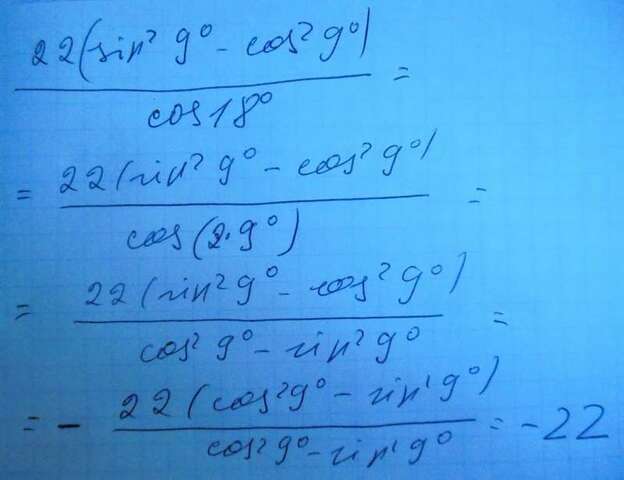 22(sin² 9° - cos² 9°)
cos 18° =
= 22(sin² 9° - cos² 9°)
cos(2·9°) =
= 22(sin² 9° - cos² 9°)
cos² 9° - sin² 9° =
= - 22(cos² 9° - sin² 9°)
cos² 9° - sin² 9° = -22